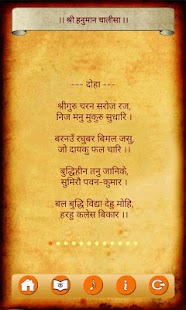 ।। श्री हनुमान चालीसा ।।
--- दोहा ---
श्रीगुरु चरन सरोज रज,
निज मनु मुकुरु सुधारि ।
बरनउँ रघुबर बिमल जसु,
जो दायकु फल चारि ।।
बुद्धिहीन तनु जानिके,
सुमिरौं पवन-कुमार ।
बल बुद्धि विद्या देहु मोहि,
हरहु कलेस बिकार ।।
क